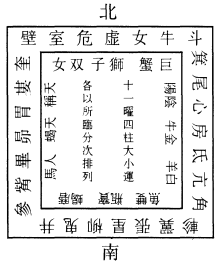 北
壁室危虛女牛斗
箕尾心房氐亢角
軫翼張星柳鬼井
奎婁胃昴畢觜參
女双 子獅 蟹巨
陽陰 牛金 羊白
稱天 蝎天 馬人
魚雙 瓶寶
十一曜四柱大小運
各以所臨分次排列
南